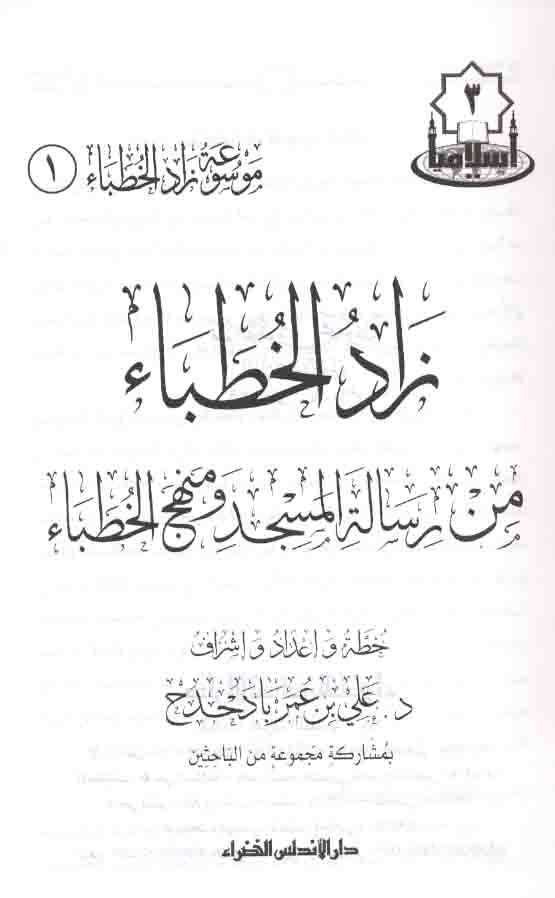 ٣
إسلاميا
موسوعة زاد الخطباء ١
زَادُ الخُطَبَاء
مِنْ رِسَالَةِ المَسْجِدِ وَمَنْهَجِ الخُطَبَاء
خُطَّة وَإعْدَاد وَإشرَاف
د. عَلي بن عُمَر بَادَحدَح
بمُشاركة مجموعة من البَاحثين
دار الأندلس الخضراء